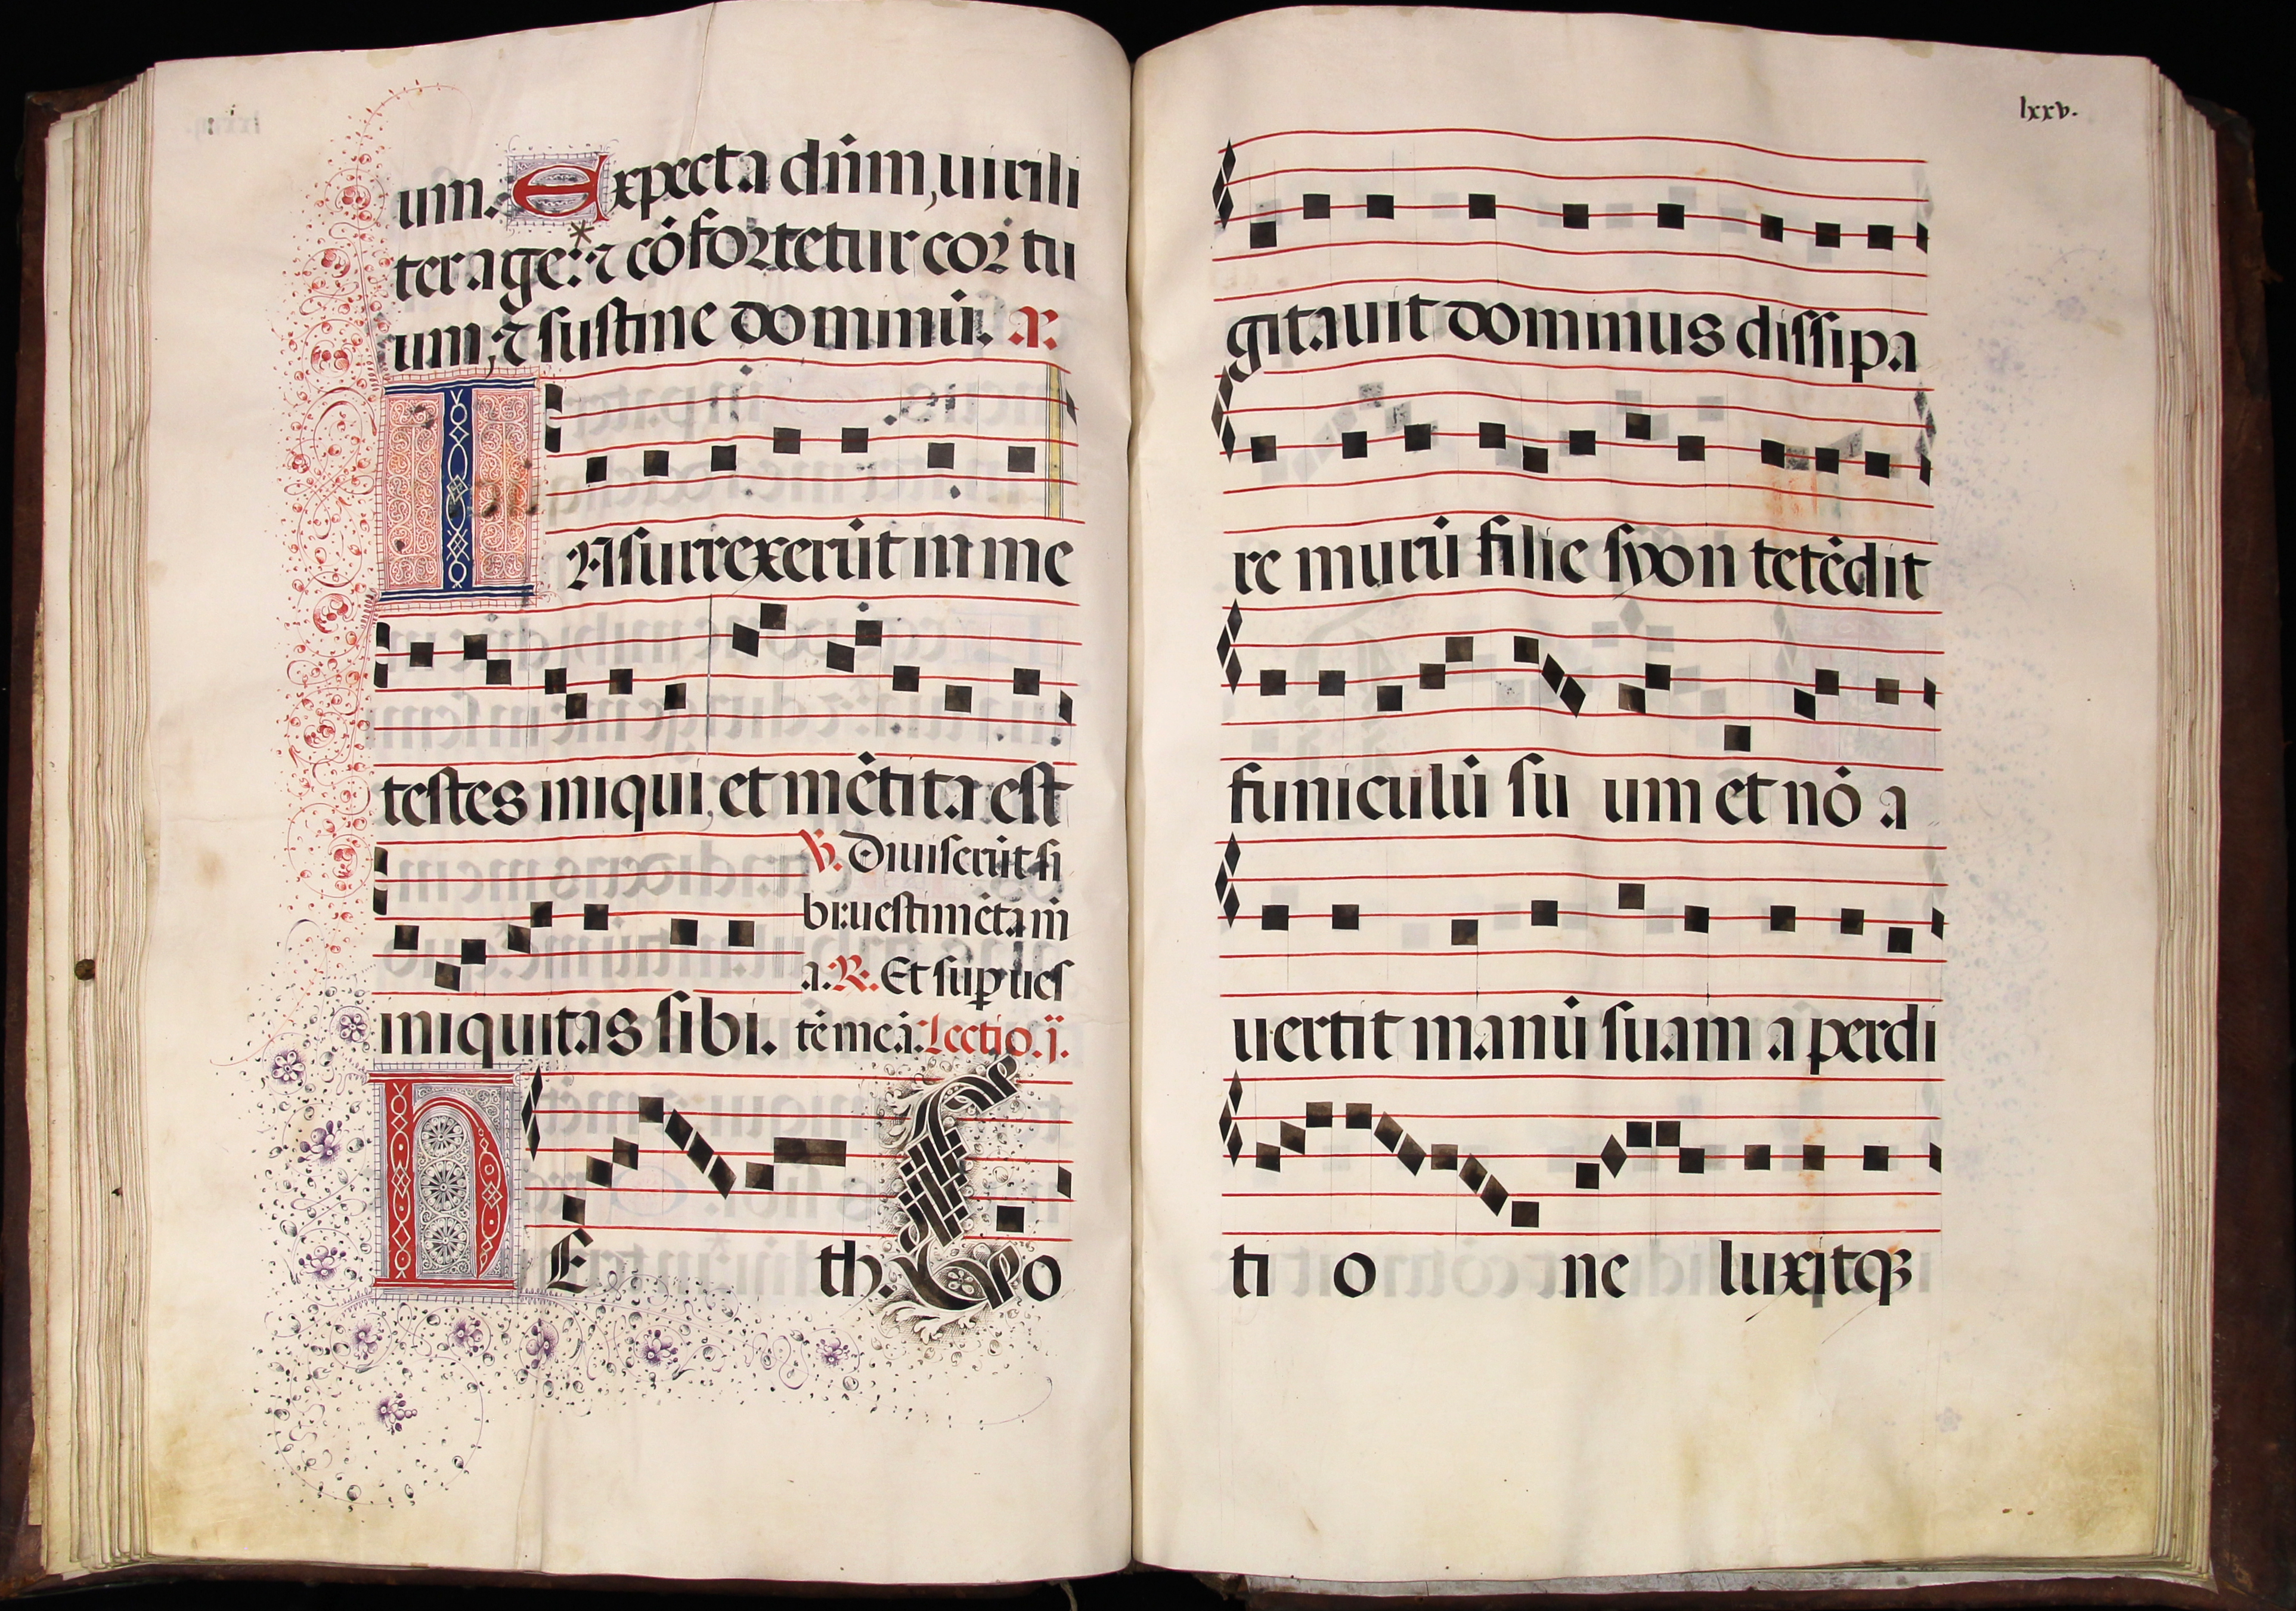 um. Expecta dn̄m, uirili
ter age: ⁊ cōfortetur cor tu
um, ⁊ sustine dominū. a:
INsurrexerūt in me
testes iniqui, et mētita est
℣. Diuiserūt si
bi: uestimēta m̄
a: ℟. Et sup ues
iniquitas sibi. tē meā: Lectio. ij.
HEth. Co
lxxv.
gitauit dominus dissipa
re murū filie syon tetēdit
funiculū su um et nō a
uertit manū suam a perdi
ti o ne luxitqꝫ